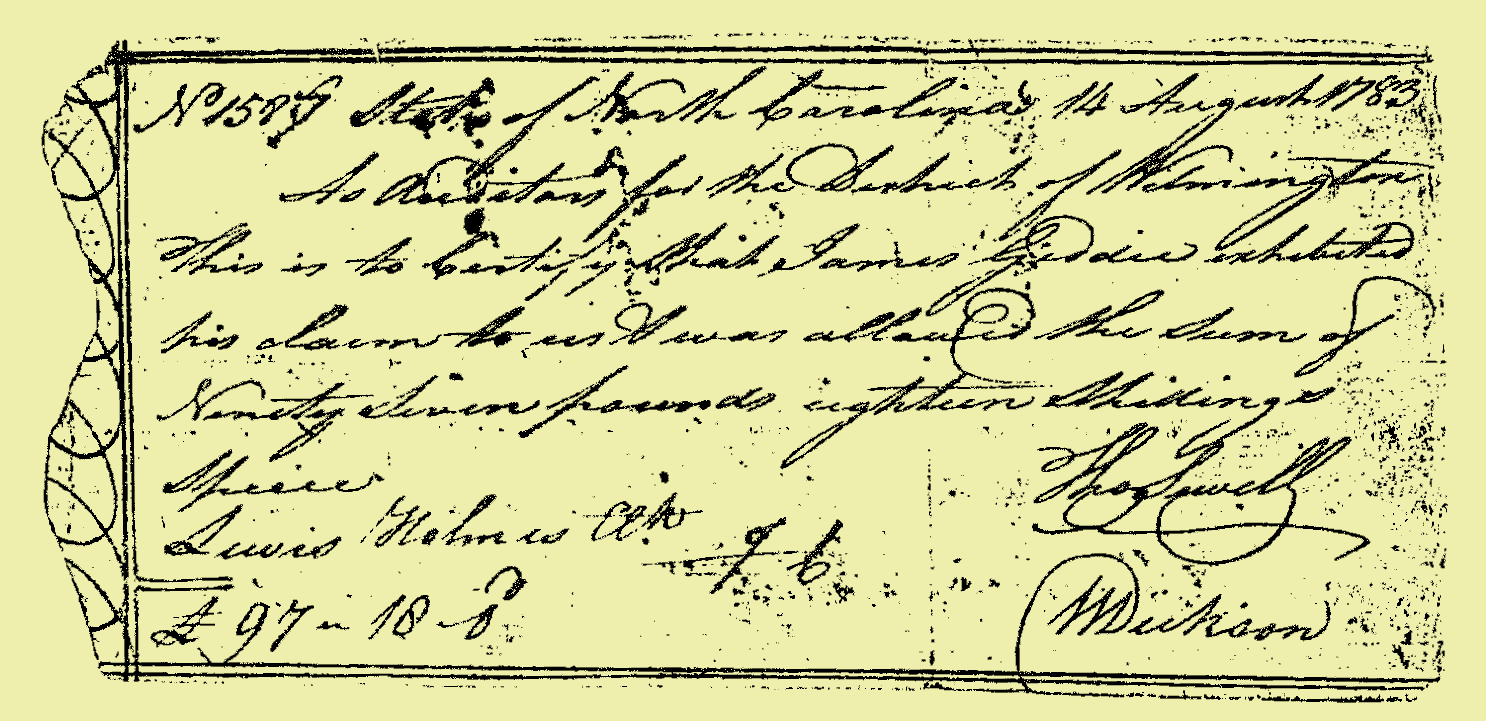 No State of North Carolina 14 August 1783
As Auditors for the District of Wilmington
This is to Certify that James Geddie exhibited
his claim to us & was allowed the Sum of
Ninety Seven pounds eighteen Shillings
Specie
Lewis Holmes Clk
Thos Sewell
£ 97 - 18 - 0
W Dickson